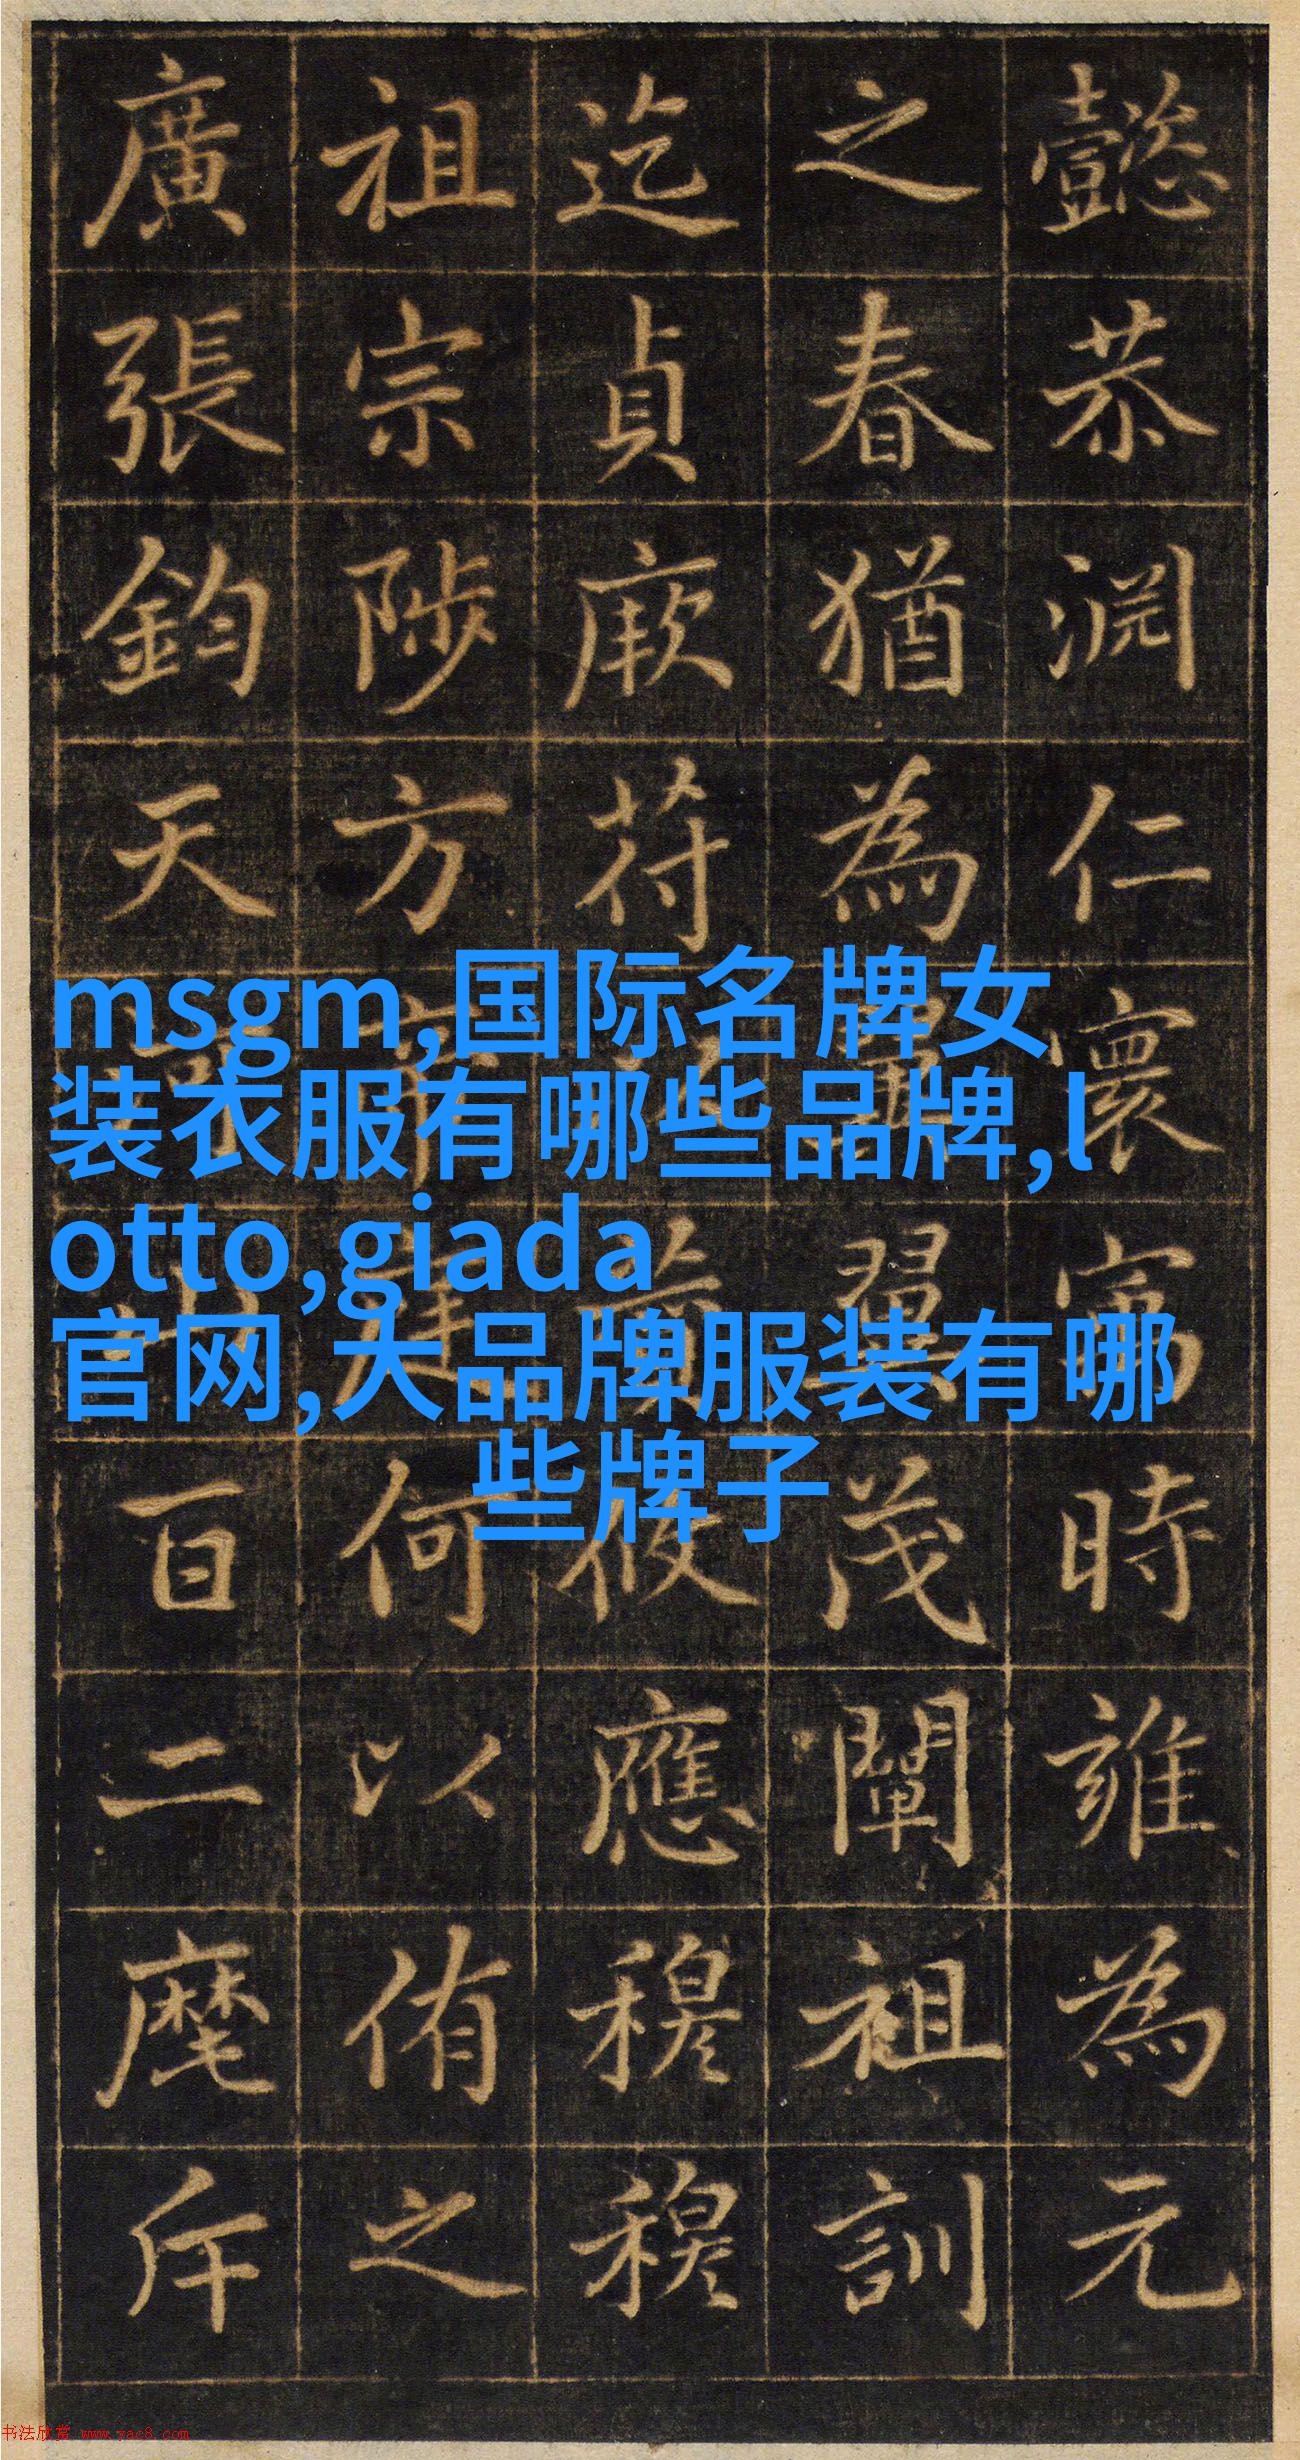 懿恭渊仁寰寓時雍為元
之春猶為翼茂闡祖訓
迄貞厥苻攸應穆穆
祖宗陟方何以侑之
廣張鈞天百二麾斥
msgm,国际名牌女
装衣服有哪些品牌,l
otto,giada
官网,大品牌服装有哪
些牌子
书法欣赏 www.yac8.com